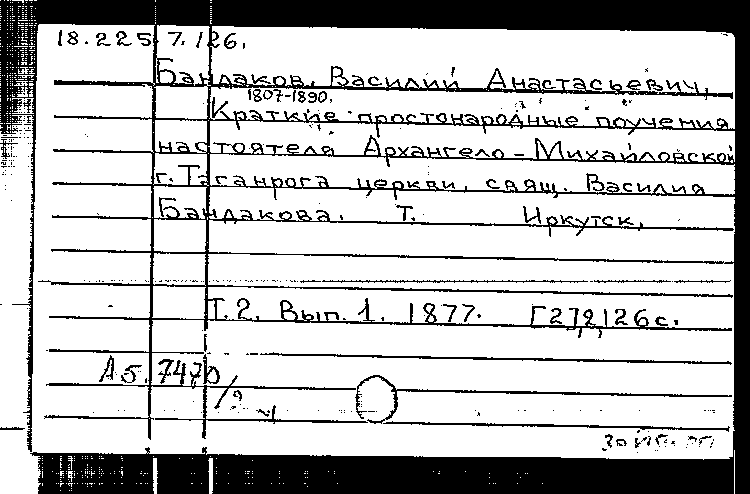 18.225.7.126.
Бандаков, Василий Анастасьевич,
1807-1890.
Краткие простонародные поучения
настоятеля Архангело-Михайловской
г. Таганрога церкви, свящ. Василия
Бандакова. Т. Иркутск,
Т.2. Вып. 1. 1877. [2], 2, 126 с.
А5.7470
/2